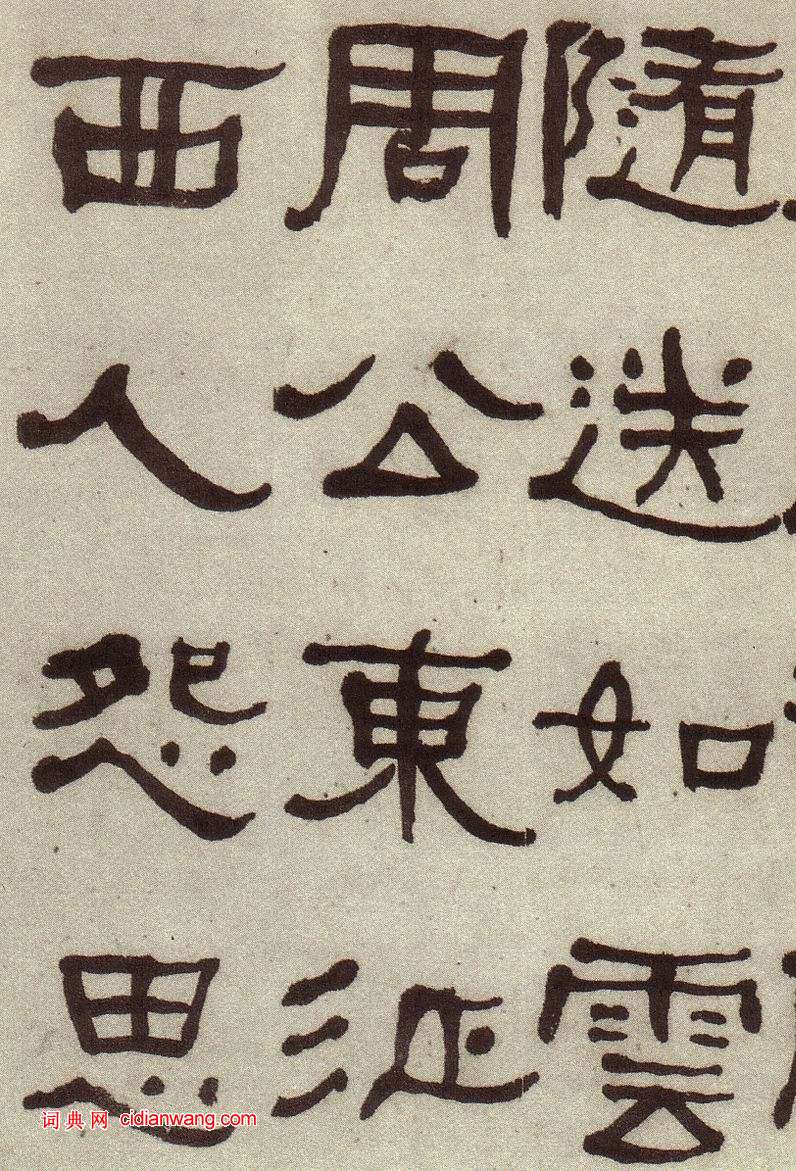 隨送如雲
周公東征
西人怨思
词典网 cidianwang.com